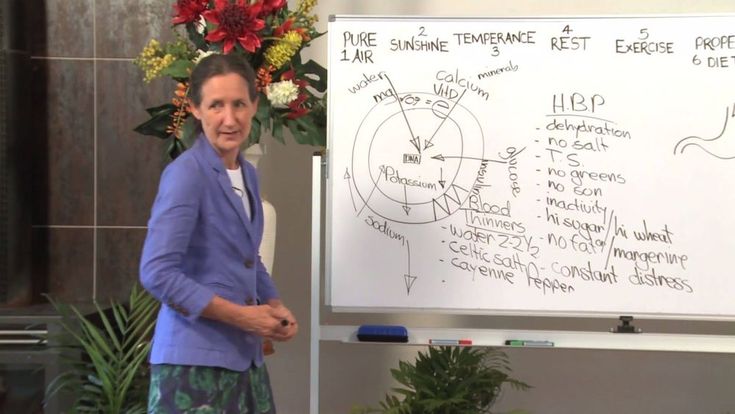 PURE
1 AIR
2
SUNSHINE
TEMPERANCE
3
4
REST
5
EXERCISE
PROPE
6 DIET
water
mag
calcium
minerals
VHD
DNA
glucose
insulin
Potassium
sodium
Blood
Thinners
- water 2-2½
- celtic salt
- cayenne pepper
H.B.P
- dehydration
- no salt
- T.S.
- no greens
- no son
- inactivity
- hi sugar/hi wheat
- no fat or/mangerine
- constant distress